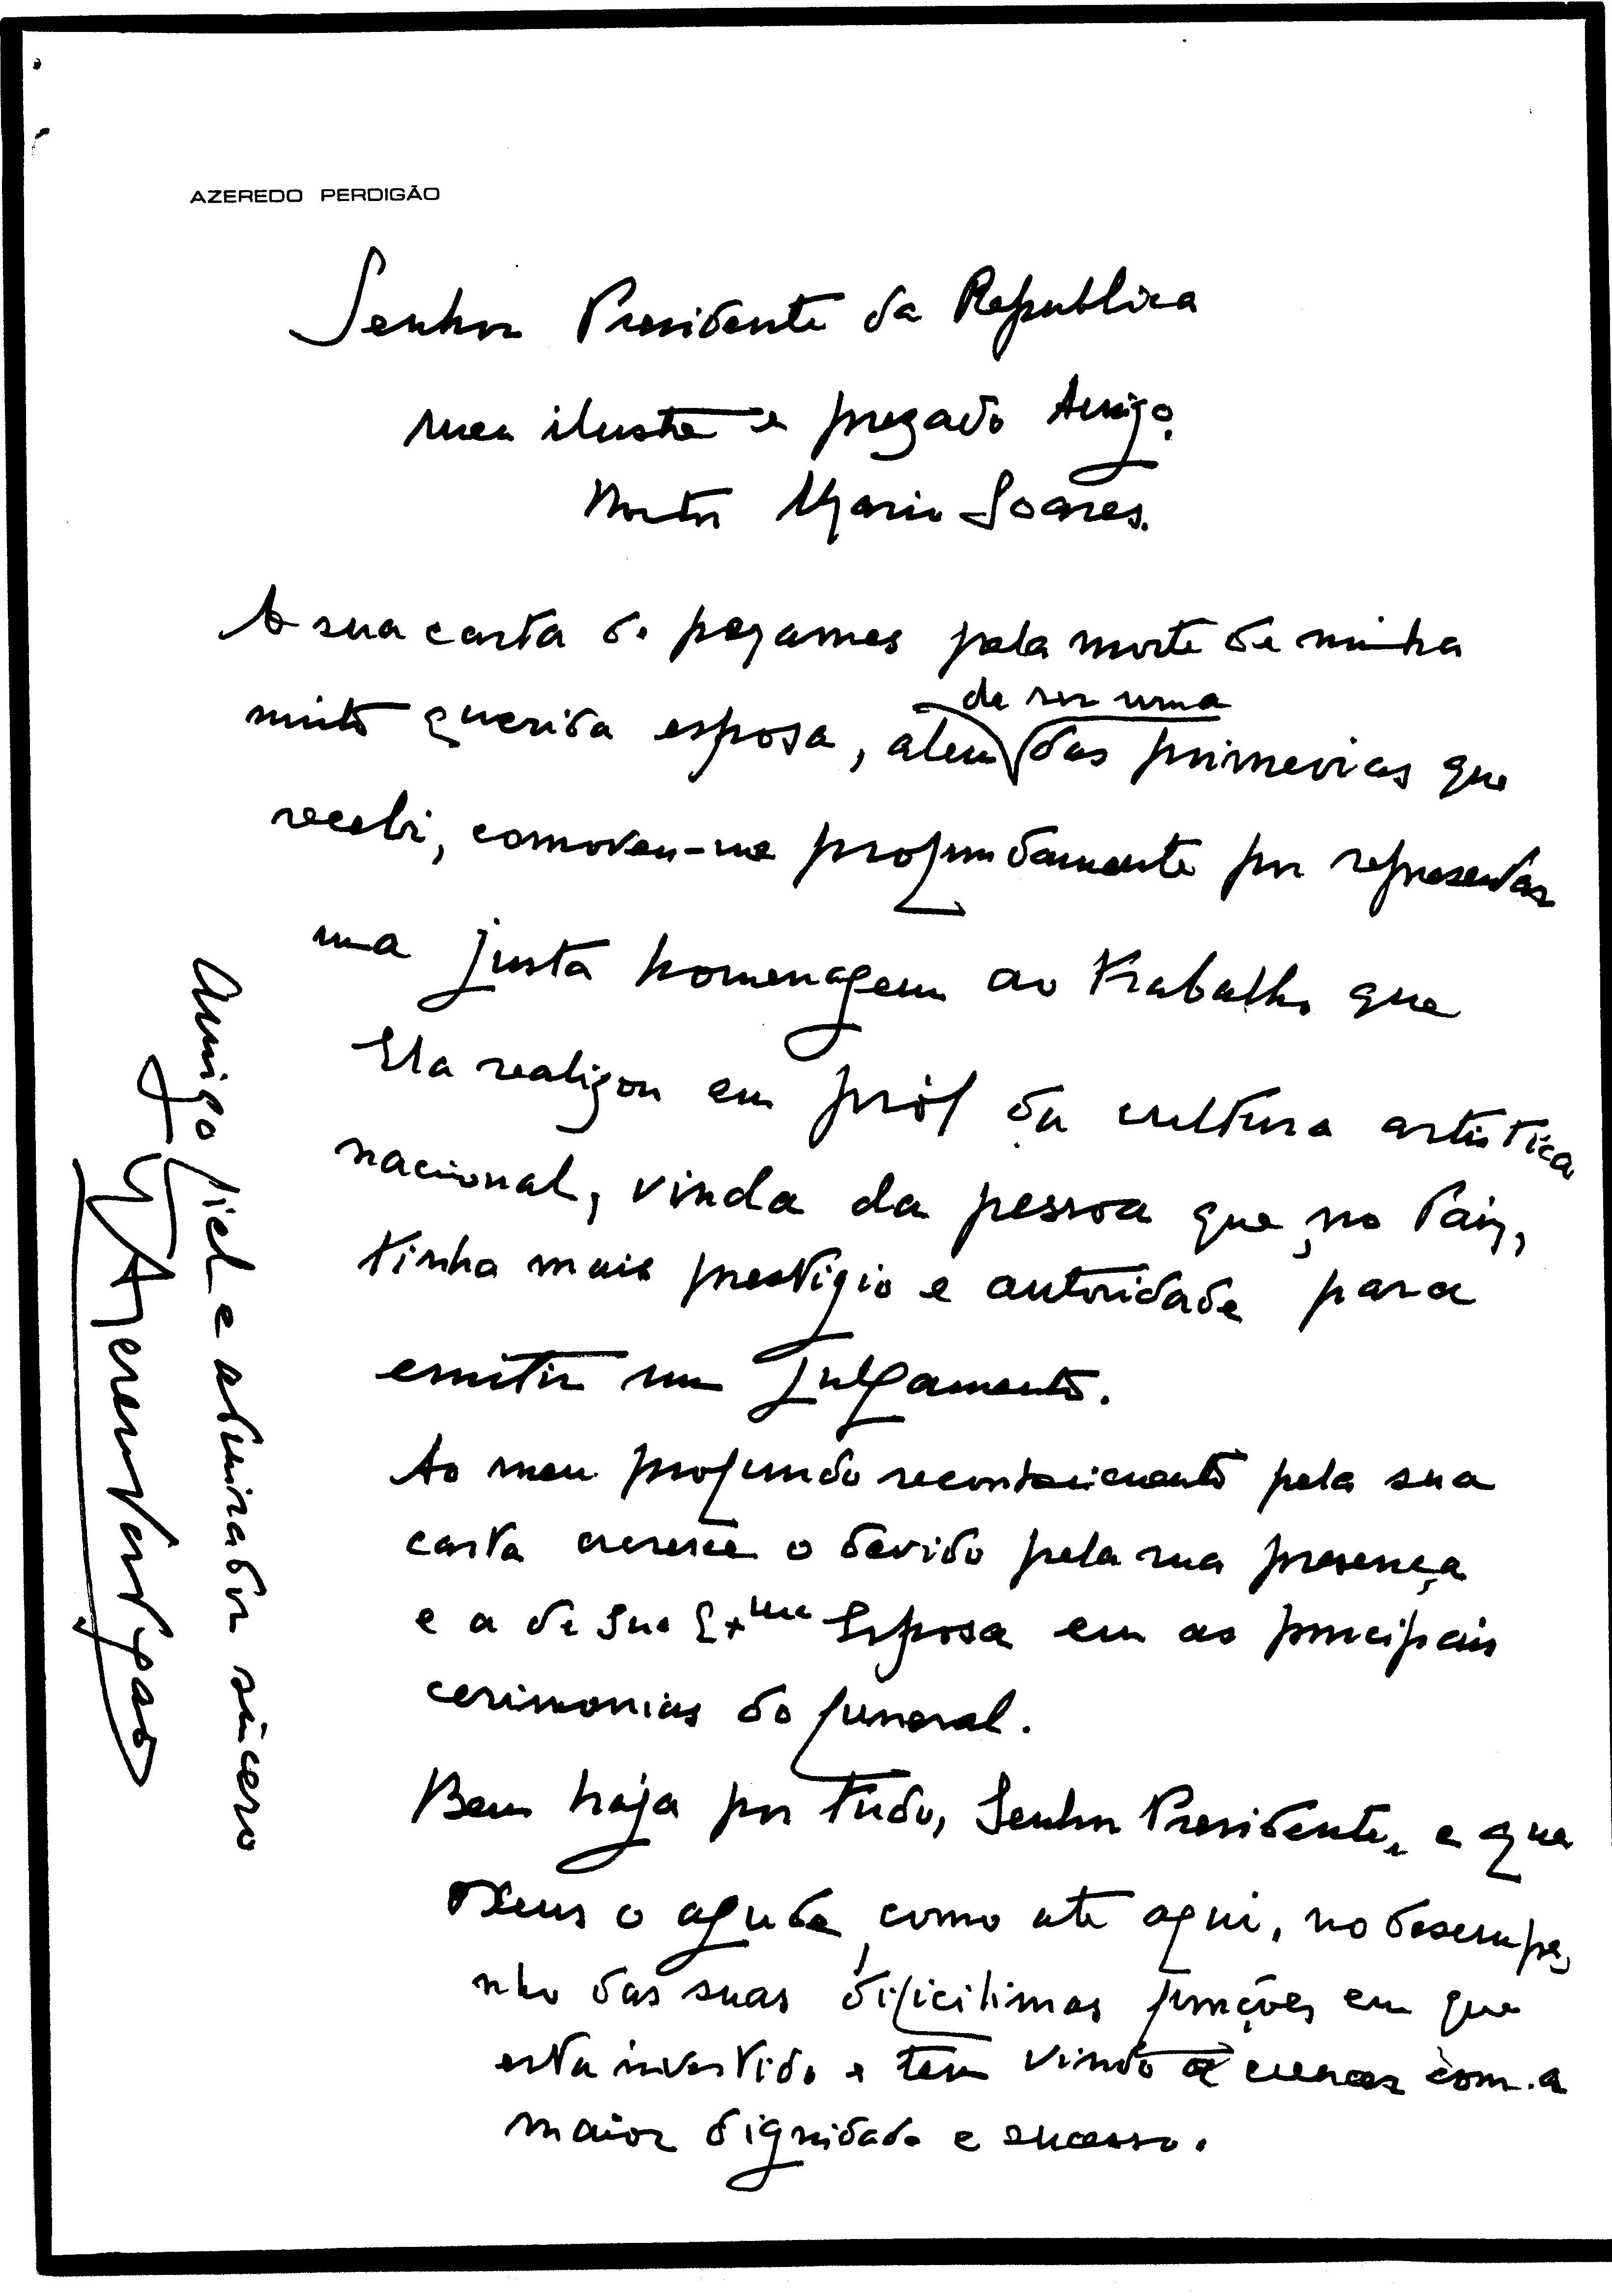 AZEREDO PERDIGÃO
Senhor Presidente da Republica
meu ilustre e prezado Amigo,
Doutor Mario Soares.
A sua carta de pezames pela morte de minha
muito querida esposa, alem de ser uma das primeiras que
recebi, comoveu-me profundamente por representar
uma justa homenagem ao trabalho que
Ela realizou em pról da cultura artistica
nacional, vinda da pessoa que, no Paiz,
tinha mais prestigio e autoridade para
emitir um julgamento.
Ao meu profundo reconhecimento pela sua
carta acresce o devido pela sua presença
e a de Sua Exma Esposa em as principais
cerimonias do funeral.
Bem haja por tudo, Senhor Presidente, e que
Deus o ajude, como até aqui, no desempe-
nho das suas dificilimas funções em que
esta investido e tem vindo a exercer com a
maior dignidade e sucesso.
Amigo fiel e admirador sincero
Azeredo Perdigão